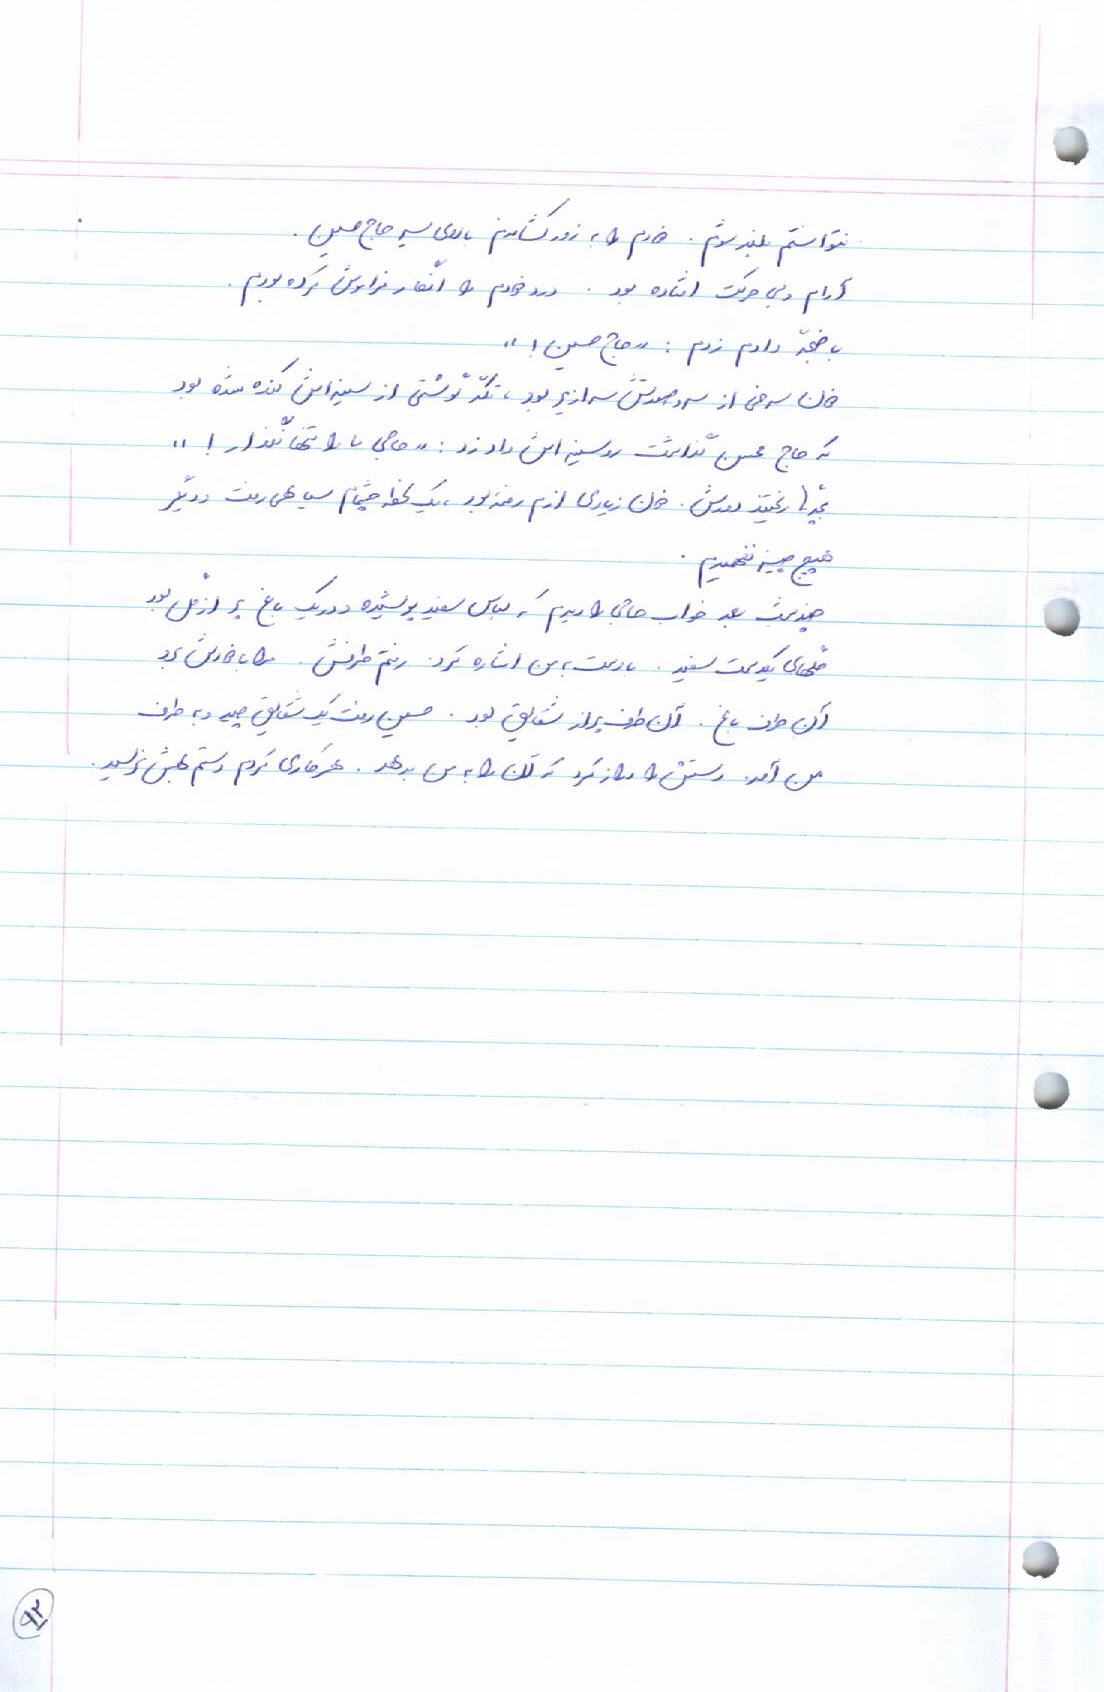 نتوانستم بلند شوم. خودم را به زور کشاندم بالای سر حاج حسین.
آرام و بی حرکت افتاده بود. درد خودم را انگار فراموش کرده بودم.
با ضجّه داد زدم: «حاج حسین!»
خون سرخی از سر و صورتش سرازیر بود، تکّه گوشتی از سینه اش کنده شده بود
که حاج محسن گذاشت رو سینه اش داد زد: «حاجی ما را تنها نگذار!»
بچّه ها ریختند دورش. خون زیادی ازم رفته بود، یک لحظه چشمام سیاهی رفت و دیگر
هیچ چیز نفهمیدم.
چند شب بعد خواب حاجی را دیدم که لباس سفید پوشیده و در یک باغ پر از گل بود
گلهای یکدست سفید. با دست به من اشاره کرد. رفتم طرفش. مرا با خودش برد
آن طرف باغ. آن طرف پر از شقایق بود. حسین رفت یک شقایق چید و به طرف
من آمد. دستش را دراز کرد که آن را به من بدهد. هر کاری کردم دستم بهش نرسید.
۹۲